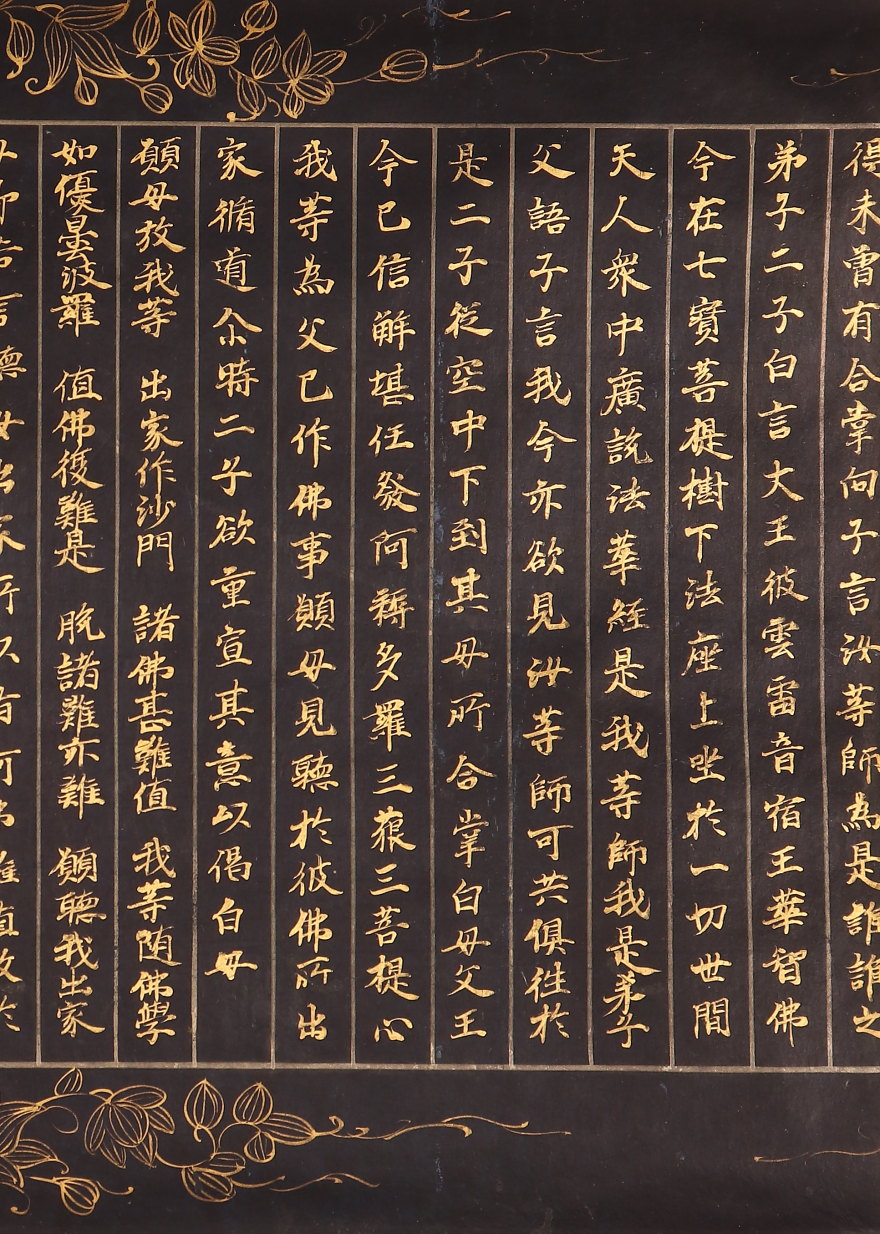 得未曾有合掌向子言汝等師為是誰誰之
弟子二子白言大王彼雲雷音宿王華智佛
今在七寶菩提樹下法座上坐於一切世間
天人衆中廣說法華經是我等師我是弟子
父語子言我今亦欲見汝等師可共俱往於
是二子從空中下到其母所合掌白母父王
今已信解堪任發阿耨多羅三藐三菩提心
我等為父已作佛事願母見聽於彼佛所出
家脩道尒時二子欲重宣其意以偈白母
願母放我等　出家作沙門　諸佛甚難值　我等随佛學
如優曇波羅　值佛復難是　脫諸難亦難　願聽我出家
母即告言聽汝出家所以者何佛難值故於